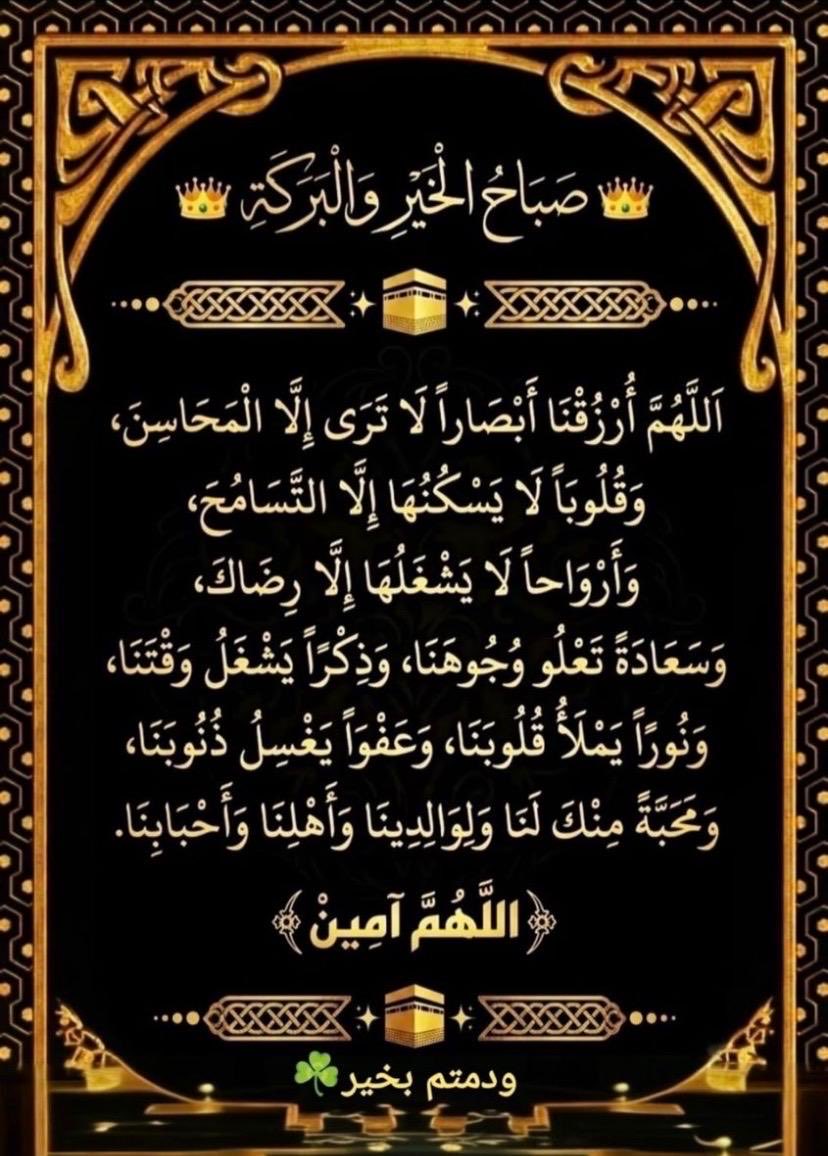 👑 صَبَاحُ الْخَيْرِ وَالْبَرَكَةِ 👑
اَللَّهُمَّ أُرْزُقْنَا أَبْصَاراً لَا تَرَى إِلَّا الْمَحَاسِنَ،
وَقُلُوبَاً لَا يَسْكُنُهَا إِلَّا التَّسَامُحَ،
وَأَرْوَاحاً لَا يَشْغَلُهَا إِلَّا رِضَاكَ،
وَسَعَادَةً تَعْلُو وُجُوهَنَا، وَذِكْرًا يَشْغَلُ وَقْتَنَا،
وَنُورَاً يَمْلَأُ قُلُوبَنَا، وَعَفْوَاً يَغْسِلُ ذُنُوبَنَا،
وَمَحَبَّةً مِنْكَ لَنَا وَلِوَالِدِينَا وَأَهْلِنَا وَأَحْبَابِنَا.
﴿اللَّهُمَّ آمِينْ﴾
ودمتم بخير☘️